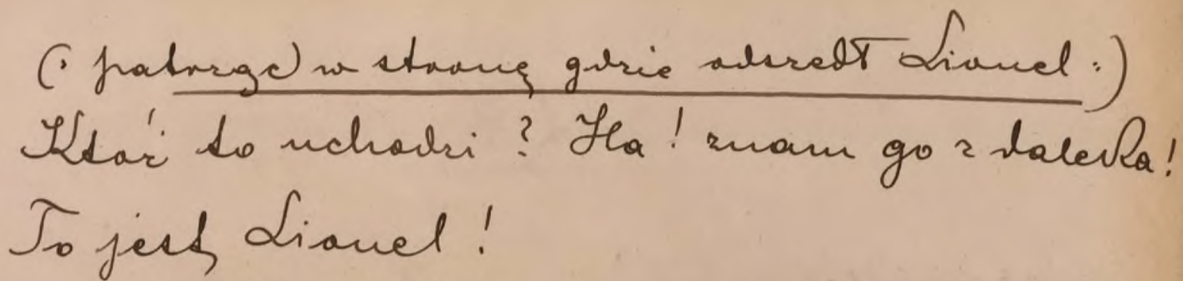 (: patrząc w stronę gdzie odszedł Lionel :)
Któż to uchodzi? Ha! znam go z daleka!
To jest Lionel!